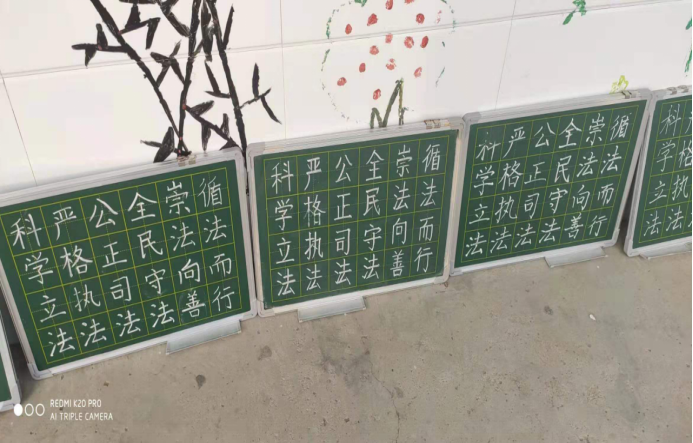 科学立法
严格执法
公正司法
全民守法
崇法向善
循法而行
科学立法
严格执法
公正司法
全民守法
崇法向善
循法而行
科学立法
严格执法
公正司法
全民守法
崇法向善
循法而行
科学立法
REDMI K20 PRO
AI TRIPLE CAMERA